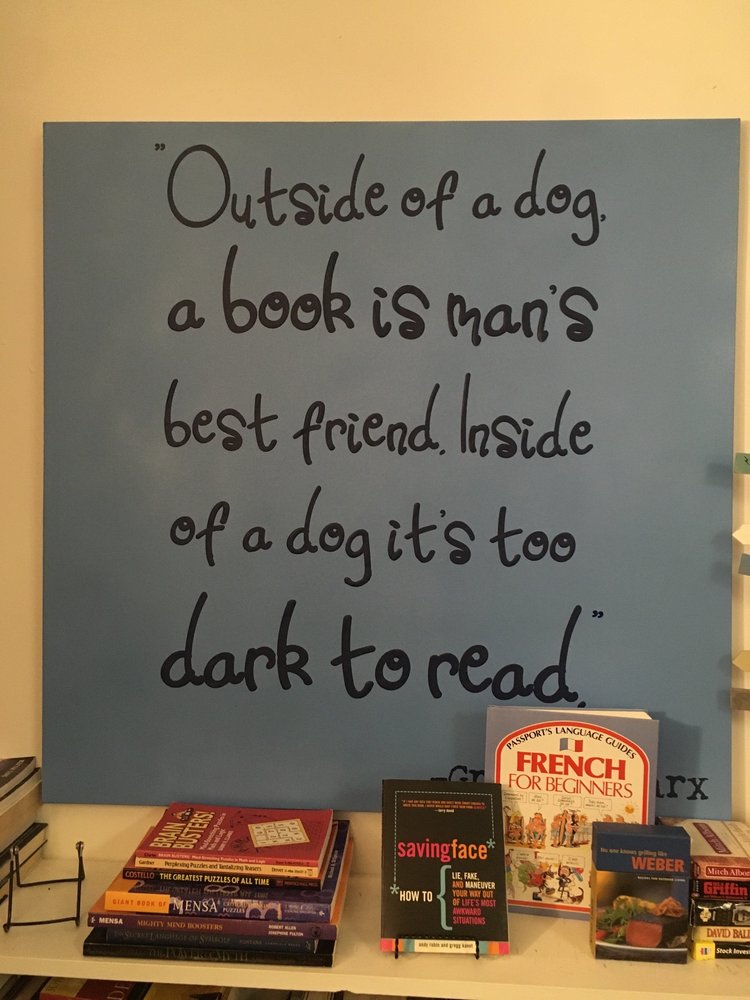 "Outside of a dog,
a book is man's
best friend. Inside
of a dog it's too
dark to read."
PASSPORT'S LANGUAGE GUIDES
FRENCH
FOR BEGINNERS
savingface*
*HOW TO
LIE, FAKE,
AND MANEUVER
YOUR WAY OUT
OF LIFE'S MOST
AWKWARD
SITUATIONS
andy robin and gregg kavet
No one knows grilling like
WEBER
BRAIN
BUSTERS!
BRAIN BUSTERS!
Gardner Perplexing Puzzles and Tantalizing Teasers Dover
COSTELLO THE GREATEST PUZZLES OF ALL TIME
GIANT BOOK OF MENSA PUZZLES
MENSA MIGHTY MIND BOOSTERS ROBERT ALLEN
JOSEPHINE FULTON
THE SECRET LANGUAGE OF SYMBOLS FONTANA
Mitch Albom
Griffin
DAVID BAL
Stock Invest